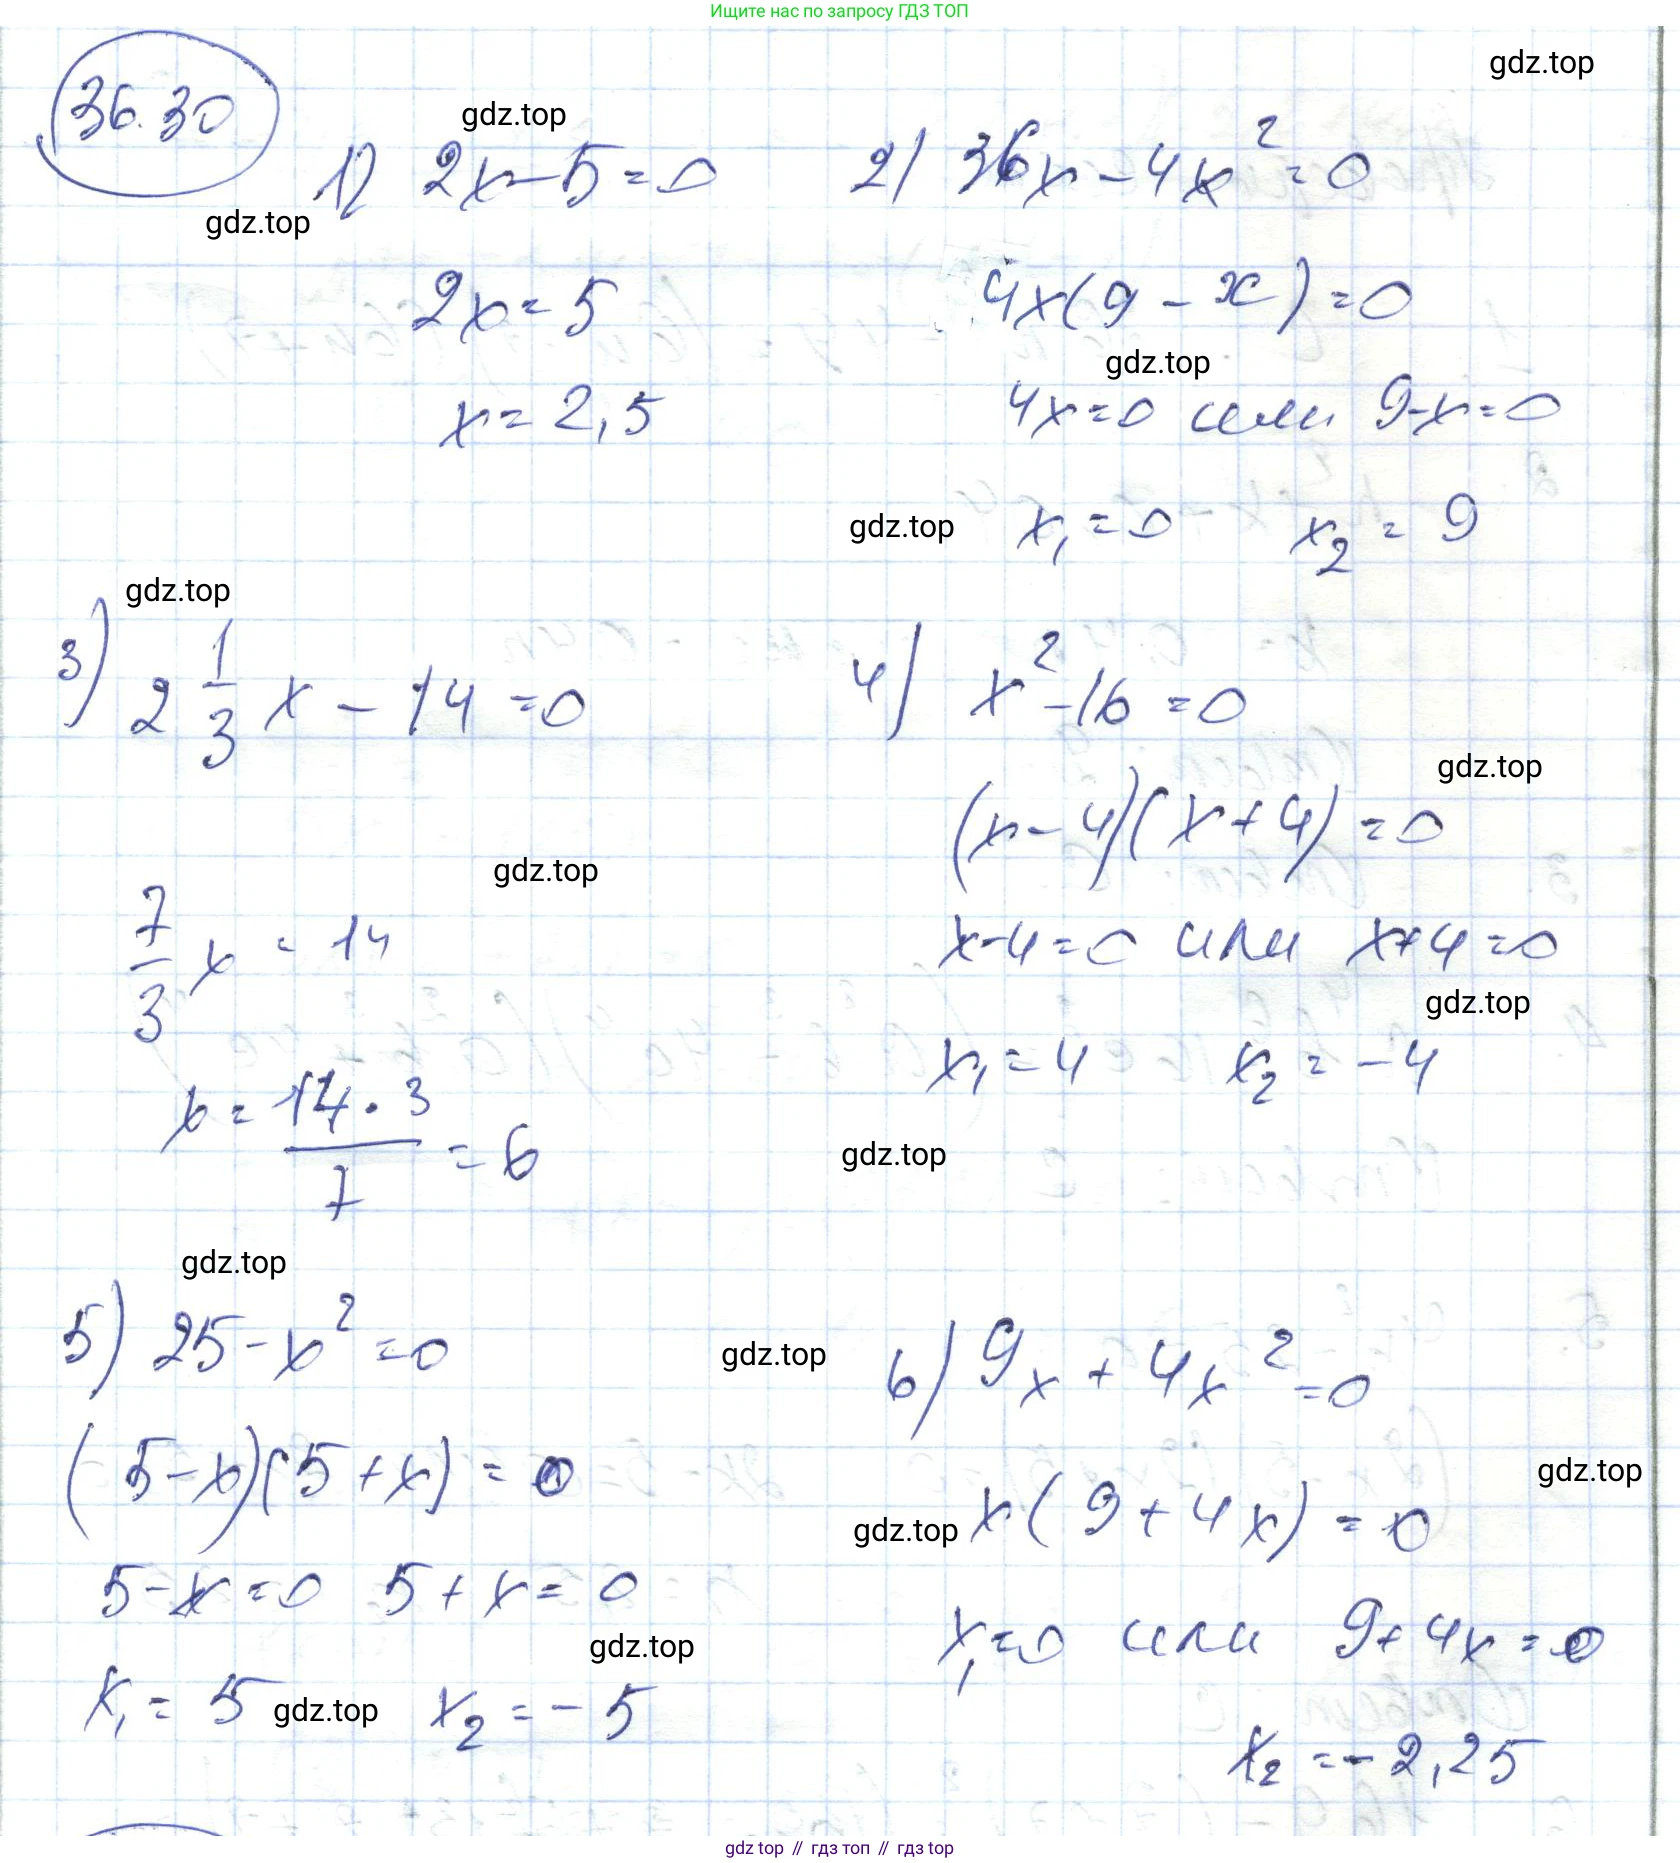 Ищите нас по запросу ГДЗ ТОП
gdz.top
36.30
gdz.top
1) 2x-5=0
2) 36x-4x²=0
gdz.top
2x=5
4x(9-x)=0
gdz.top
x=2,5
4x=0 или 9-x=0
gdz.top
x₁=0 x₂=9
gdz.top
3) 2 1/3 x - 14 = 0
4) x²-16=0
gdz.top
(x-4)(x+4)=0
gdz.top
7/3 x = 14
x-4=0 или x+4=0
gdz.top
x₁=4 x₂=-4
x = 14·3/7 = 6
gdz.top
gdz.top
5) 25-x²=0
gdz.top
6) 9x+4x²=0
(5-x)(5+x)=0
gdz.top
gdz.top
x(9+4x)=0
5-x=0 5+x=0
gdz.top
x₁=0 или 9+4x=0
x₁=5 gdz.top x₂=-5
x₂=-2,25
gdz top // гдз топ // gdz top